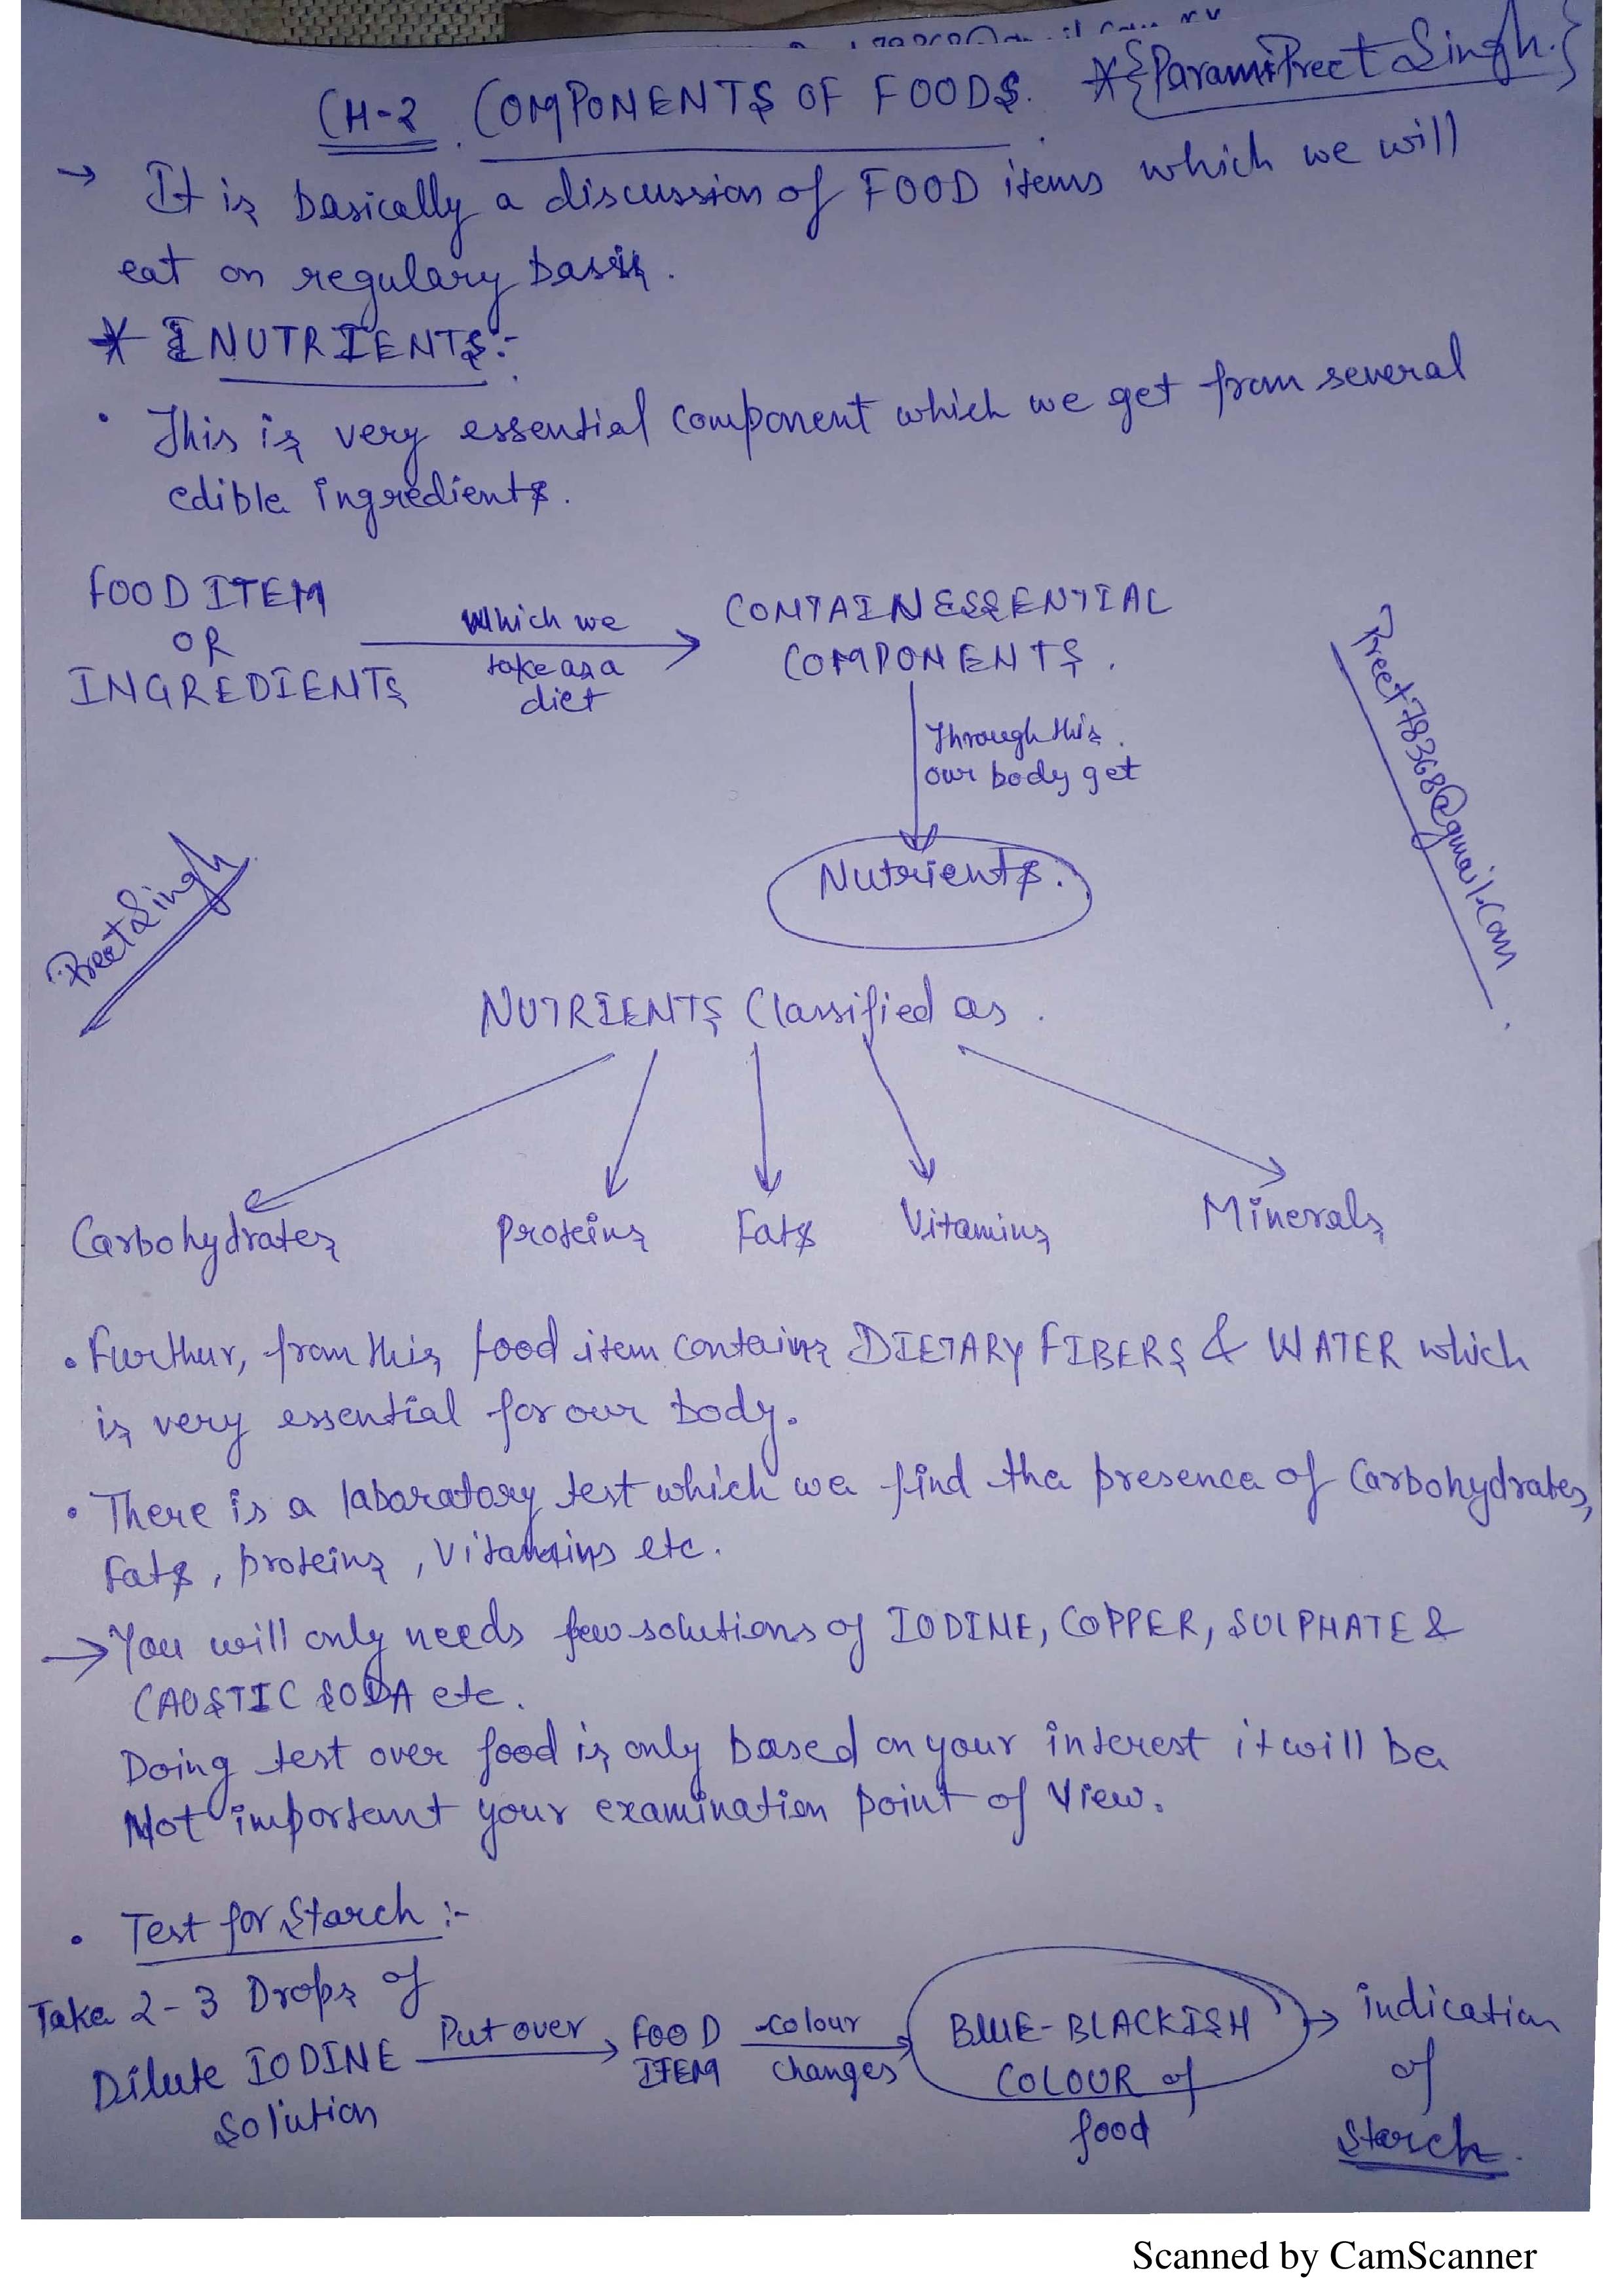 CH-2. COMPONENTS OF FOODS. *{ParamPreet Singh.}
→ It is basically a discussion of FOOD items which we will
eat on regulary basis.
* NUTRIENTS:-
• This is very essential component which we get from several
edible ingredients.
FOOD ITEM
OR
INGREDIENTS
which we
take as a
diet
CONTAIN ESSENTIAL
COMPONENTS.
Through this
our body get
Nutrients.
Preet78368@gmail.com
Preet Singh
NUTRIENTS Classified as.
Carbohydrates Proteins Fats Vitamins Minerals
• Further, from this food item contains DIETARY FIBERS & WATER which
is very essential for our body.
• There is a laboratory test which we find the presence of Carbohydrates,
Fats, proteins, Vitamins etc.
→ You will only needs few solutions of IODINE, COPPER, SULPHATE &
CAUSTIC SODA etc.
Doing test over food is only based on your interest it will be
Not important your examination point of View.
• Test for Starch :-
Take 2-3 Drops of
Dilute IODINE
Solution
Put over
FOOD
ITEM
colour
changes
BLUE-BLACKISH
COLOUR of
food
indication
of
Starch.
Scanned by CamScanner